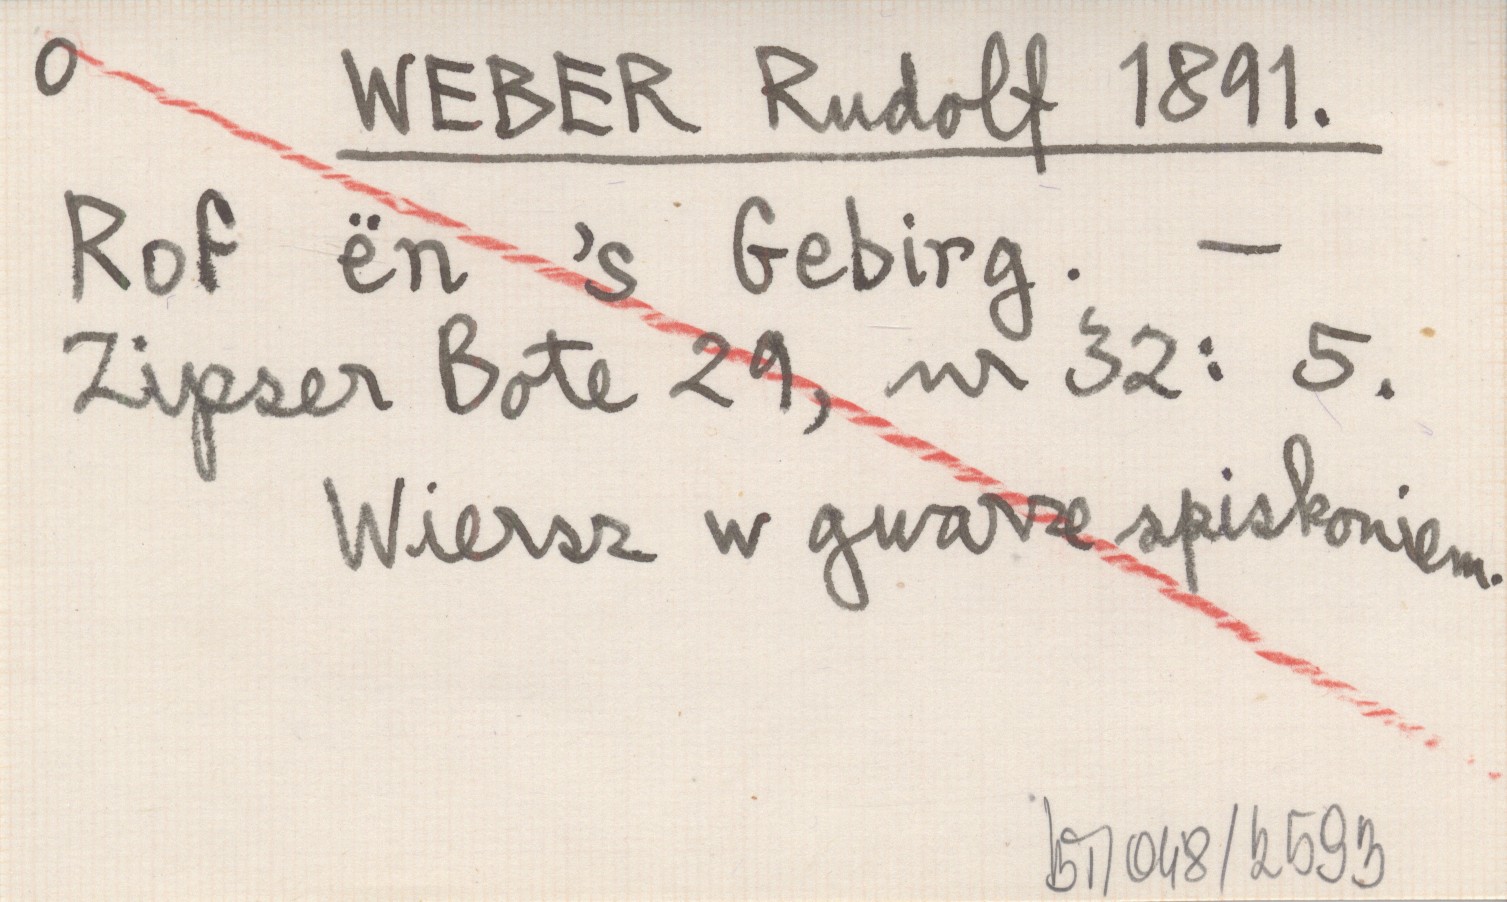 O WEBER Rudolf 1891.
Rof ën 's Gebirg. —
Zipser Bote 29, nr 32: 5.
Wiersz w gwarze spiskoniem.
BT/048/2593